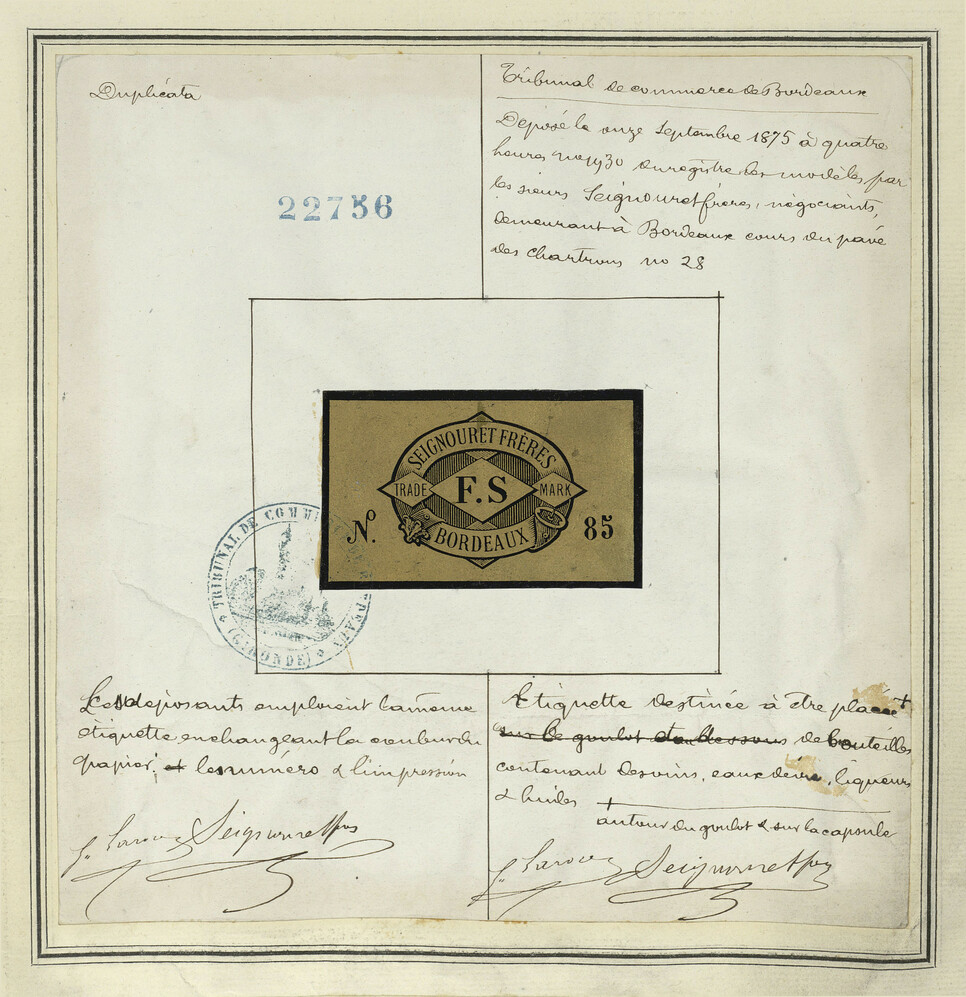 Duplicata
22756
Tribunal de commerce de Bordeaux
Déposé le onze Septembre 1875 à quatre
heures no 1930 du registre des modèles par
les sieurs Seignouret frères, négociants,
demeurant à Bordeaux cours du pavé
des chartrons no 28
SEIGNOURET FRÈRES
TRADE F.S MARK
No. BORDEAUX 85
TRIBUNAL DE COMM
(GIRONDE)
Les déposants emploient la même
étiquette en changeant la couleur du
papier, le numéro & l'impression
Etiquette destinée à être placée +
sur le goulot de bouteilles
contenant des vins, eaux de vie, liqueurs
& huiles +
autour du goulot & sur la capsule
Seignouret frs
Seignouret frs